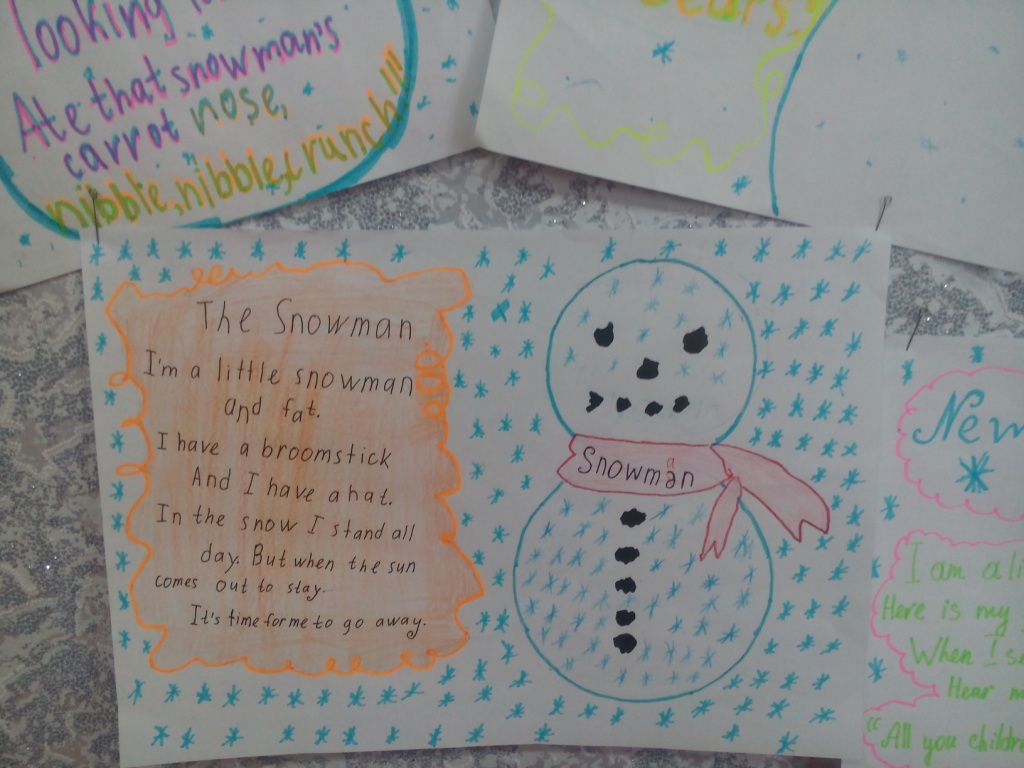 looking
Ate that snowman's
carrot nose,
nibble, nibble, crunch!!!
The Snowman
I'm a little snowman
and fat.
I have a broomstick
And I have a hat.
In the snow I stand all
day. But when the sun
comes out to stay.
It's time for me to go away.
Snowman
a
I am a
Here is my
When I
Hear
"All you